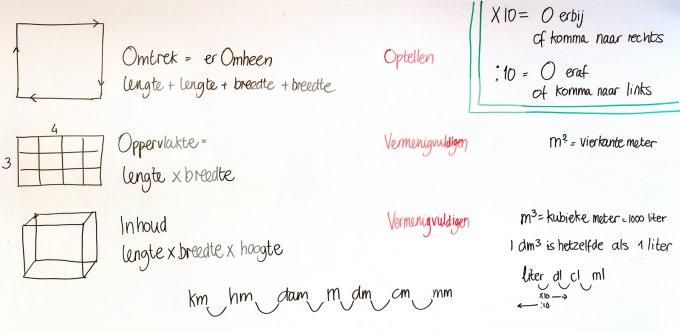 Omtrek = er Omheen
Optellen
lengte + lengte + breedte + breedte
X10 = 0 erbij
of komma naar rechts
:10 = 0 eraf
of komma naar links
4
3
Oppervlakte =
Vermenigvuldigen
m² = vierkante meter
lengte x breedte
Inhoud
Vermenigvuldigen
m³ = kubieke meter = 1000 liter
lengte x breedte x hoogte
1 dm³ is hetzelfde als 1 liter
liter dl cl ml
x10
:10
km hm dam m dm cm mm